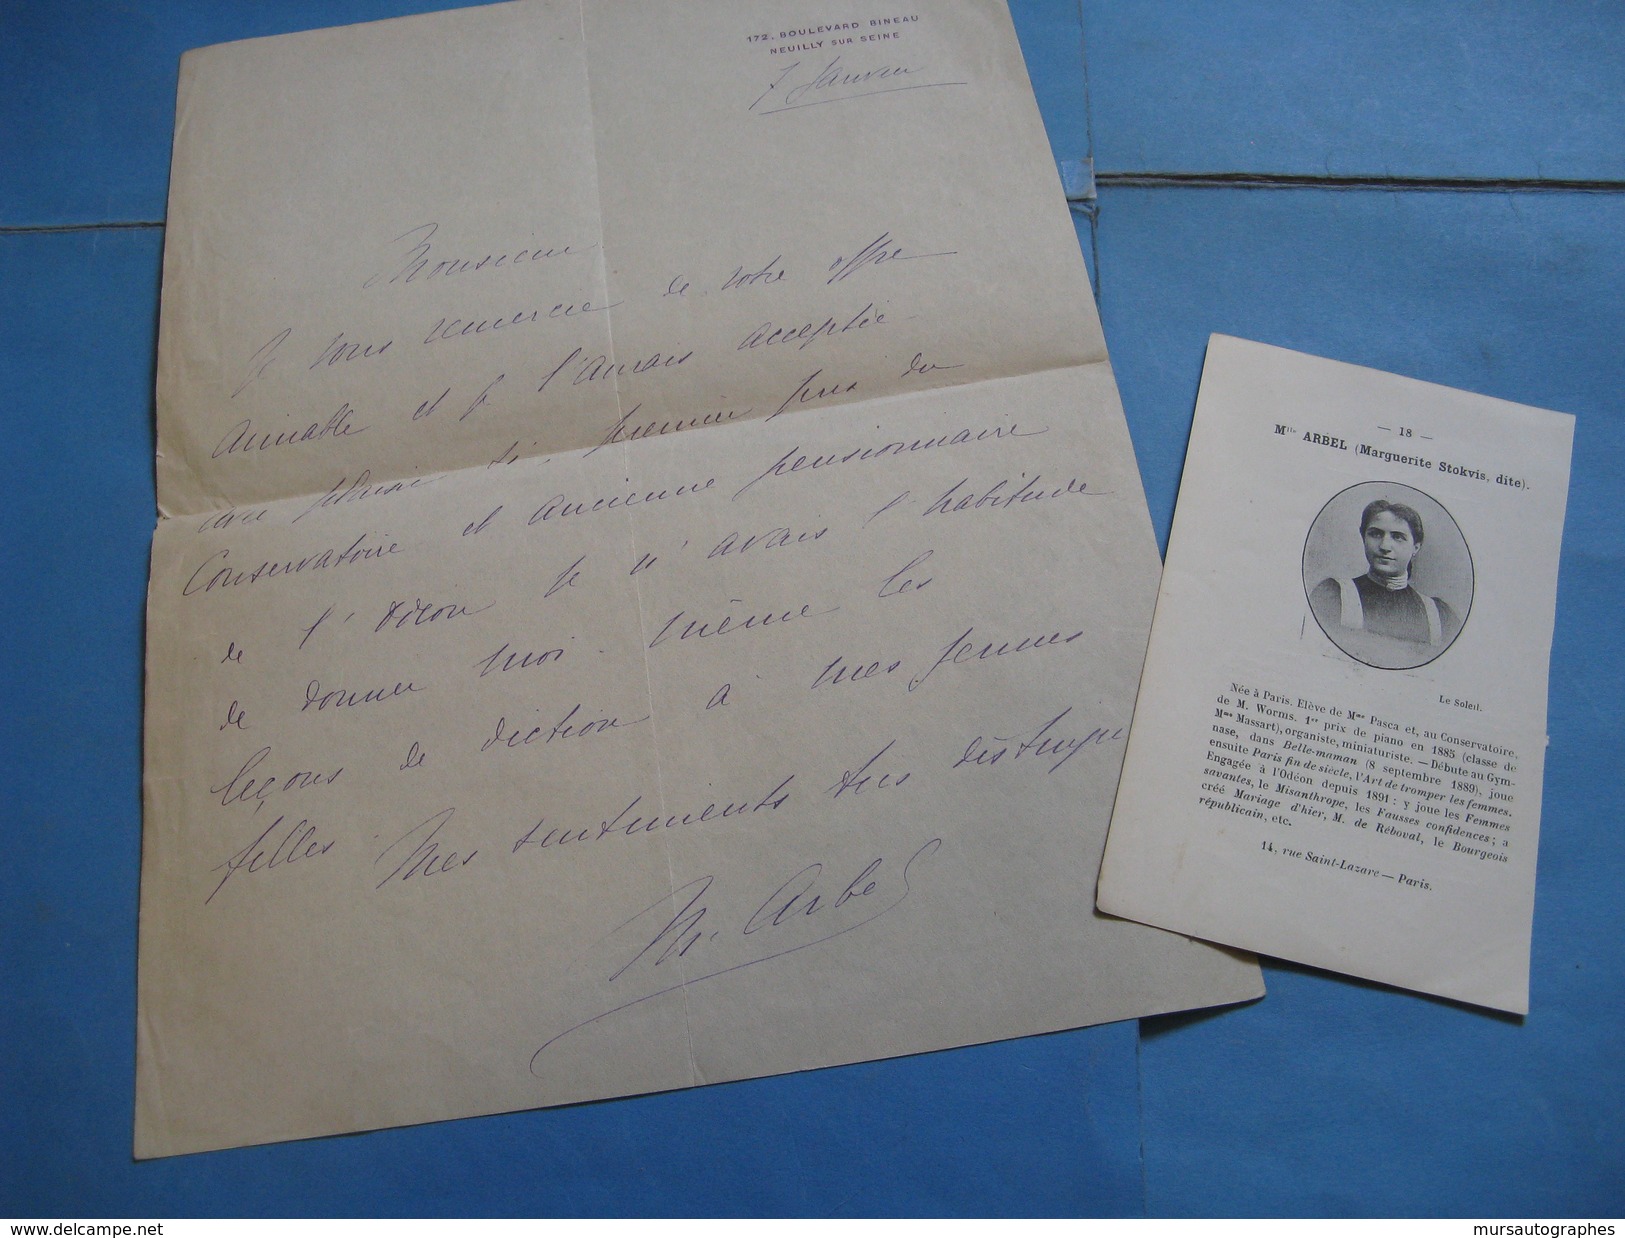 172, BOULEVARD BINEAU
NEUILLY SUR SEINE
7 Janvier
Monsieur
Je vous remercie de votre offre
aimable et je l'aurais acceptée
avec plaisir si, premier prix du
Conservatoire et ancienne pensionnaire
de l'Odéon je n'avais l'habitude
de donner moi-même les
leçons de diction à mes jeunes
filles. Mes sentiments très distingués
M. Arbel
— 18 —
Mlle ARBEL (Marguerite Stokvis, dite).
Le Soleil.
Née à Paris. Elève de Mme Pasca et, au Conservatoire,
de M. Worms. 1er prix de piano en 1885 (classe de
Mme Massart), organiste, miniaturiste. — Débute au Gym-
nase, dans Belle-maman (8 septembre 1889), joue
ensuite Paris fin de siècle, l'Art de tromper les femmes.
Engagée à l'Odéon depuis 1891 : y joue les Femmes
savantes, le Misanthrope, les Fausses confidences ; a
créé Mariage d'hier, M. de Réboval, le Bourgeois
républicain, etc.
14, rue Saint-Lazare — Paris.
www.delcampe.net
mursautographes